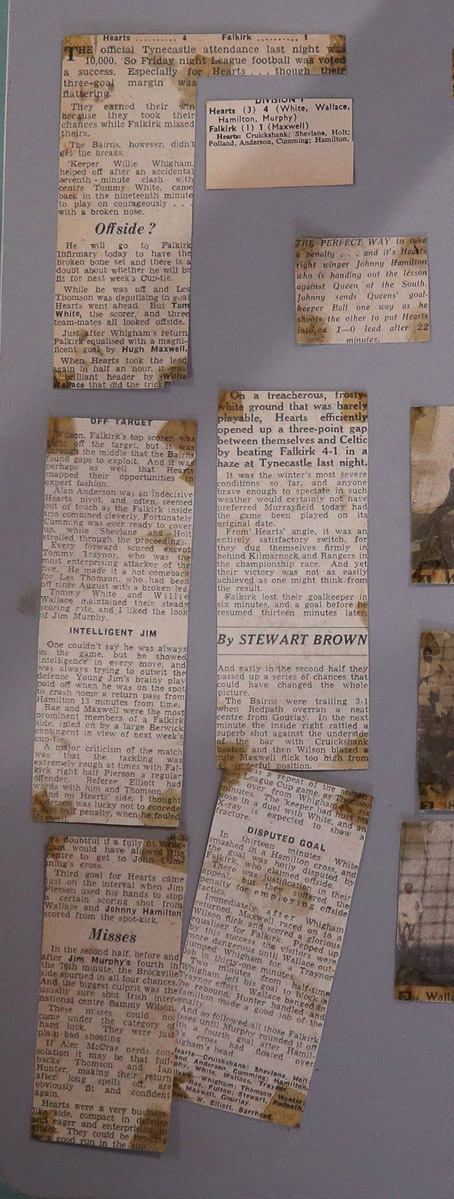 Hearts .......... 4 Falkirk .......... 1
THE official Tynecastle attendance last night was
10,000. So Friday night League football was voted
a success. Especially for Hearts . . . though their
three-goal margin was
flattering.
They earned their win
because they took their
chances while Falkirk missed
theirs.
The Bairns, however, didn't
get the breaks.
'Keeper Willie Whigham,
helped off after an accidental
seventh-minute clash with
centre Tommy White, came
back in the nineteenth minute
to play on courageously . . .
with a broken nose.
Offside ?
He will go to Falkirk
Infirmary today to have the
broken bone set and there is a
doubt about whether he will be
fit for next week's Cup-tie.
While he was off and Les
Thomson was deputising in goal
Hearts went ahead. But Tom
White, the scorer, and three
team-mates all looked offside.
Just after Whigham's return,
Falkirk equalised with a magni-
ficent goal by Hugh Maxwell.
When Hearts took the lead
again in half an hour, it was
brilliant header by Willie
Wallace that did the trick
DIVISION I
Hearts (3) 4 (White, Wallace,
Hamilton, Murphy)
Falkirk (1) 1 (Maxwell)
Hearts: Cruickshank; Shevlane, Holt;
Polland, Anderson, Cumming; Hamilton,
THE PERFECT WAY to take
a penalty . . . and it's Hearts
right winger Johnny Hamilton
who is handing out the lesson
against Queen of the South.
Johnny sends Queens' goal-
keeper Ball one way as he
shoots the other to put Hearts
into a 1—0 lead after 22
minutes.
OFF TARGET
Wilson, Falkirk's top scorer, was
right off the target, but it was
through the middle that the Bairns
found gaps to exploit. And it was
perhaps as well that Hearts
snapped their opportunities in
expert fashion.
Alan Anderson was an indecisive
Hearts pivot, and often, seemed
out of touch as the Falkirk inside
trio combined cleverly. Fortunately
Cumming was ever ready to cover
up, while Shevlane and Holt
strolled through the proceedings.
Every forward scored except
Tommy Traynor, who was the
most enterprising attacker of the
five. He made it a hot comeback
for Les Thomson, who had been
off since August with a broken leg.
Tommy White and Willie
Wallace maintained their steady
scoring rate, and I liked the look
of Jim Murphy.
INTELLIGENT JIM
One couldn't say he was always
in the game, but he showed
intelligence in every move, and
was always trying to outwit the
defence Young Jim's brainy play
paid off when he was on the spot
to crash home a return pass from
Hamilton 13 minutes from time.
Rae and Maxwell were the most
prominent members of a Falkirk
side, spied on by a large Berwick
contingent in view of next week's
cup-tie.
A major criticism of the match
was that the tackling was
extremely rough at times with Fal-
kirk right half Pierson a regular
offender. Referee Elliott had
words with him and Thomson.
And on Hearts' side, I thought
Anderson was lucky not to concede
half penalty, when he fouled
On a treacherous, frosty-
white ground that was barely
playable, Hearts efficiently
opened up a three-point gap
between themselves and Celtic
by beating Falkirk 4-1 in a
haze at Tynecastle last night.
It was the winter's most severe
conditions so far, and anyone
brave enough to spectate in such
weather would certainly not have
preferred Murrayfield today had
the game been played on its
original date.
From Hearts' angle, it was an
entirely satisfactory switch, for
they dug themselves firmly in
behind Kilmarnock and Rangers in
the championship race. And yet
their victory was not as easily
achieved as one might think from
the result.
Falkirk lost their goalkeeper in
six minutes, and a goal before he
resumed thirteen minutes later.
By STEWART BROWN
And early in the second half they
passed up a series of chances that
could have changed the whole
picture.
The Bairns were trailing 3-1
when Redpath overran a neat
centre from Gourlay. In the next
minute the inside right rattled a
superb shot against the underside
of the bar with Cruickshank
beaten, and then Wilson blazed a
cute Maxwell flick too high from
powerful position.
is doubtful if a fully fit
would have allowed the
centre to get to John Cum-
ming's cross.
Third goal for Hearts came
just on the interval when Jim
Pierson used his hands to stop
a certain scoring shot from
Wallace and Johnny Hamilton
scored from the spot-kick.
Misses
In the second half, before and
after Jim Murphy's fourth in
the 76th minute, the Brockville
side spurned in all four chances.
And the biggest culprit was the
usually sure shot Irish inter-
national centre Sammy Wilson.
These misses could not
come under the category of
hard luck. They were just
plain bad shooting
If Alec McCrae needs con-
solation it may be that full-
backs Thomson and Ian
Hunter, making their return
after long spells off,
obviously fit and confident
again.
Hearts were a very business-
like side, compact in defence
and eager and enterprising in
attack. They could be
good run in the
was a repeat of the
Cup game,
over from Whigham
minutes. The 'keeper had hurt his
nose in a duel with White, and an
X-ray is expected to show a
fracture.
DISPUTED GOAL
In thirteen minutes White
smashed in a Hamilton cross, and
the goal was hotly disputed by
Falkirk, who claimed offside.
There was justification for their
appeal, but they suffered the
penalty of employing offside
tactics.
Immediately after Whigham
returned, Maxwell raced on to a
Wilson flick and scored a glorious
equaliser for Falkirk. Pepped up
by this success the visitors were
more dangerous until Wallace out-
Whigham for a Traynor
lob in thirty-one minutes.
Two minutes from half-time
Whigham left his goal to block a
Wallace shot. As Wallace banged in
the rebound, Hunter handled and
Hamilton made a good job of the
And so followed all those Falkirk
misses until Murphy rounded it off
with a fourth goal after Hamil-
ton's cross had floated over
Whigham's head.
Hearts—Cruickshank; Shevlane, Holt
and Anderson, Cumming; Hamilton,
White, Wallace, Traynor
Whigham; Thomson, Hunter
Fulton, Stewart; Redpath,
Maxwell, Gourlay.
Elliott, Barrhead.
Walla